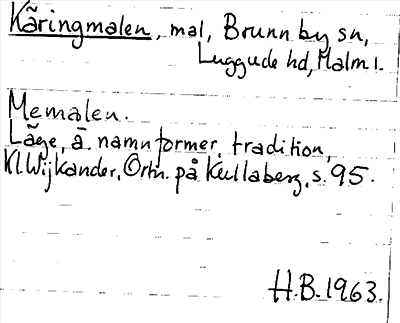 Käringmalen, mal, Brunnby sn,
Luggude hd, Malm l.
Memalen.
Läge, ä. namnformer, tradition,
Kl. Wijkander, Ortn. på Kullaberg, s. 95.
H.B. 1963.